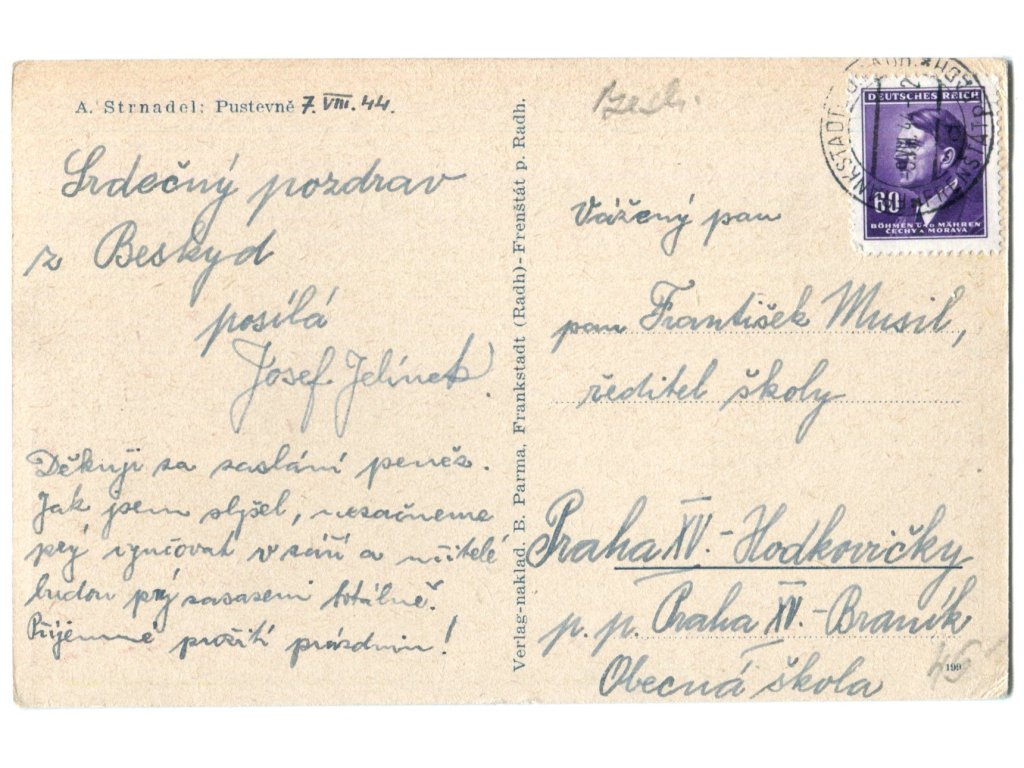 A. Strnadel: Pustevně 7. VIII. 44.
Srdečný pozdrav
z Beskyd
posílá
Josef Jelínek.
Děkuji za zaslání peněz.
Jak jsem slyšel, nezačneme
prý vyučovat v září a učitelé
budou prý zasazeni totálně.
Příjemné prožití prázdnin!
Verlag-naklad. B. Parma, Frankstadt (Radh)-Frenštát p. Radh.
DEUTSCHES REICH
60
BÖHMEN UND MÄHREN
ČECHY A MORAVA
Vážený pan
pan František Musil,
ředitel školy
Praha XV.-Hodkovičky
p. p. Praha XV.-Braník
Obecná škola
199